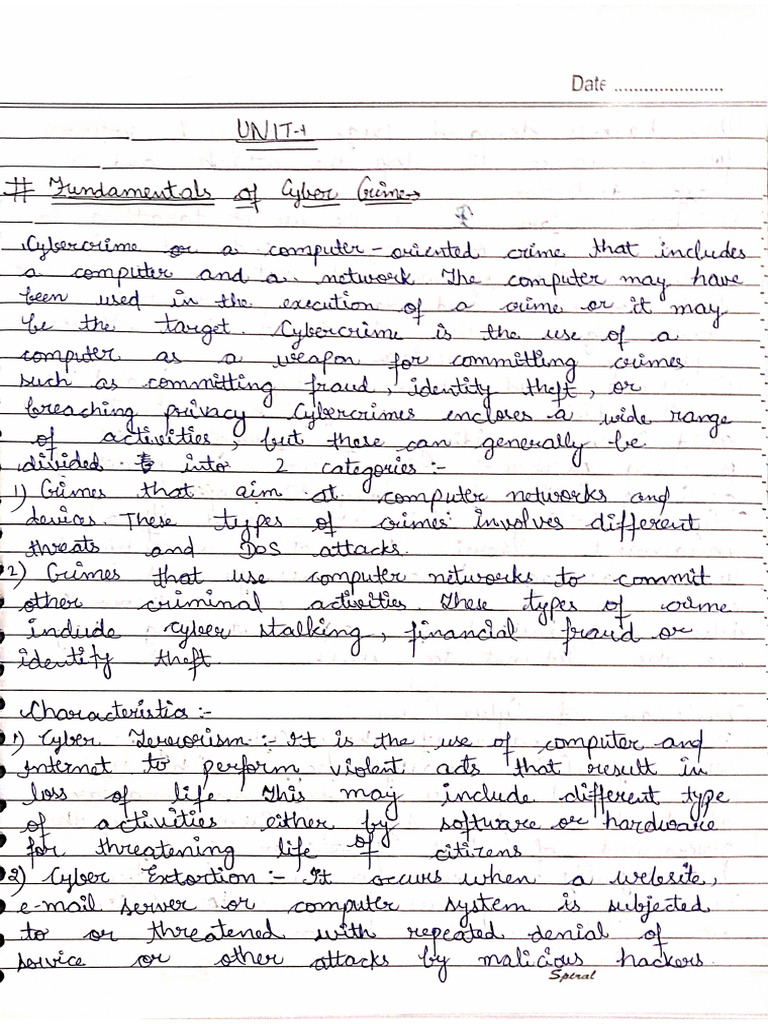 Date ......................
UNIT-1
# Fundamentals of Cyber Crime→
Cybercrime or a computer-oriented crime that includes
a computer and a network. The computer may have
been used in the execution of a crime or it may
be the target. Cybercrime is the use of a
computer as a weapon for committing crimes
such as committing fraud, identity theft, or
breaching privacy. Cybercrimes encloses a wide range
of activities, but these can generally be
divided into 2 categories :-
1) Crimes that aim at computer networks and
devices. These types of crimes involves different
threats and DoS attacks.
2) Crimes that use computer networks to commit
other criminal activities. These types of crime
include cyber stalking, financial fraud or
identity theft.
Characteristics :-
1) Cyber Terrorism :- It is the use of computer and
internet to perform violent acts that result in
loss of life. This may include different type
of activities either by software or hardware
for threatening life of citizens
2) Cyber Extortion :- It occurs when a website,
e-mail server or computer system is subjected
to or threatened with repeated denial of
service or other attacks by malicious hackers.
Spiral